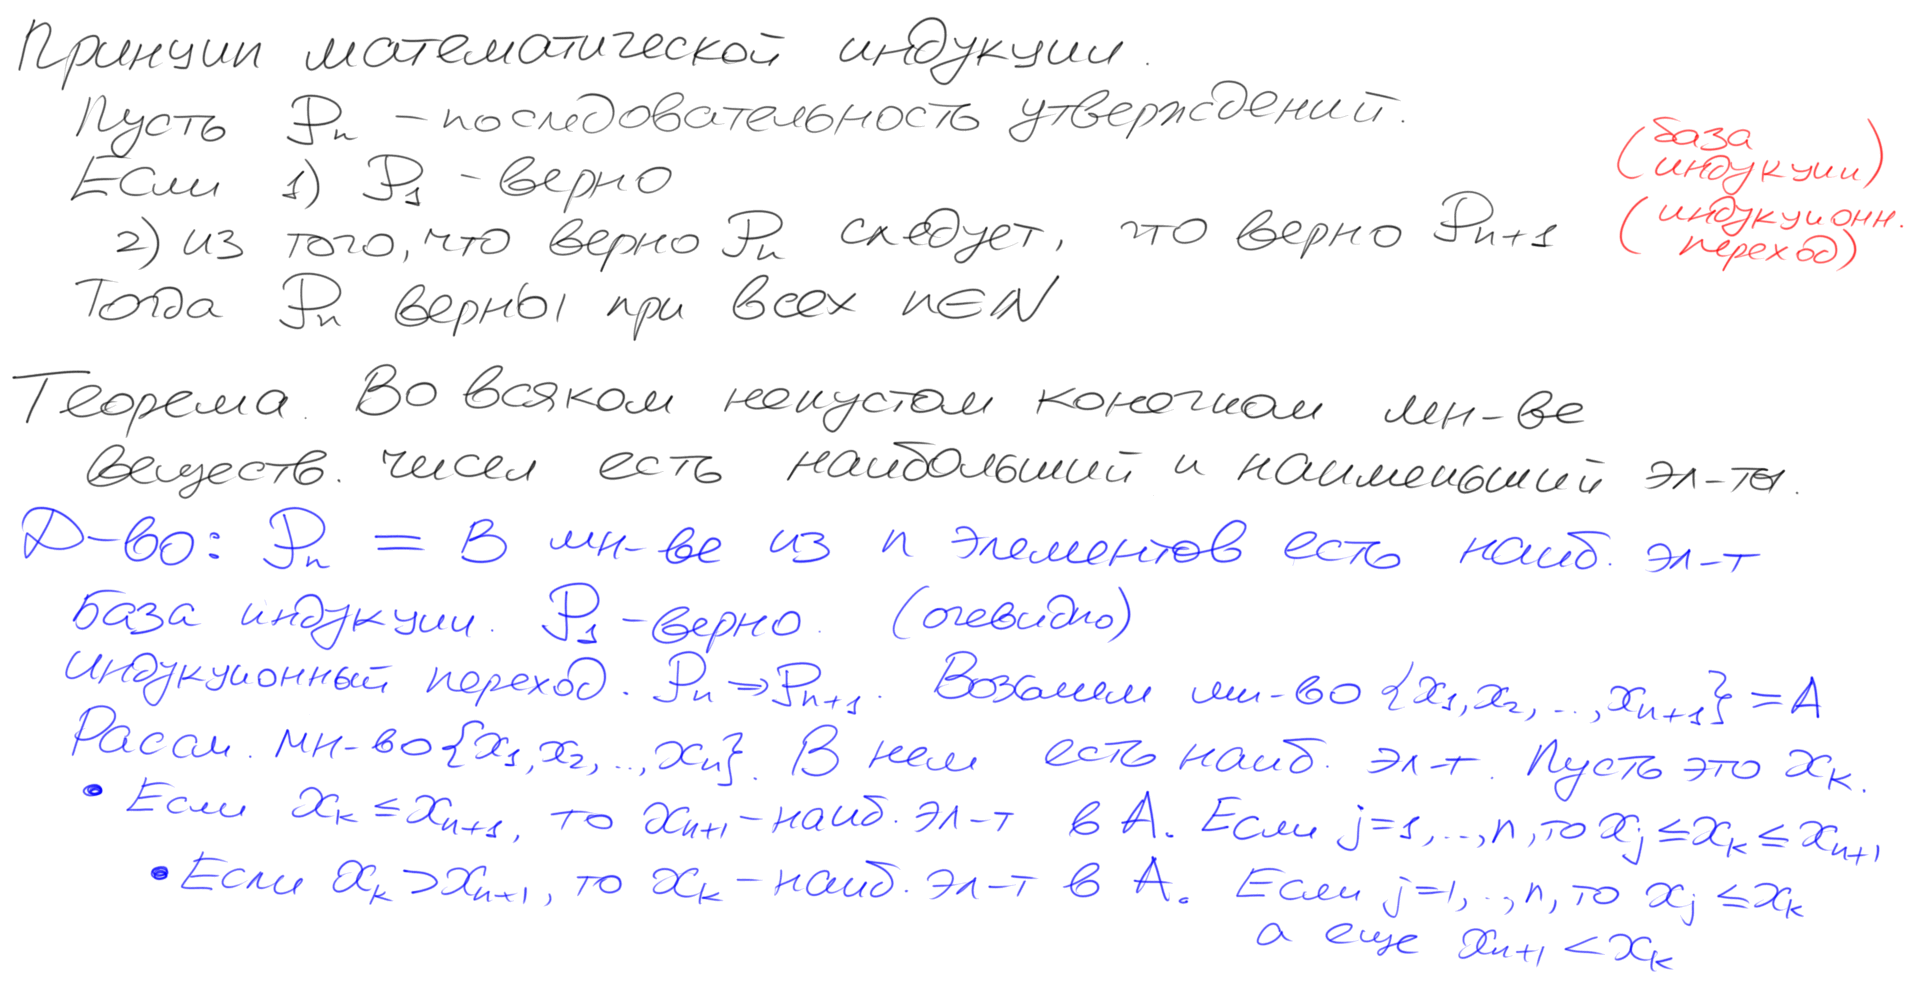 Принцип математической индукции.
Пусть Pₙ – последовательность утверждений.
Если 1) P₁ – верно (база индукции)
2) из того, что верно Pₙ следует, что верно Pₙ₊₁ (индукционн. переход)
Тогда Pₙ верны при всех n∈ℕ
Теорема. Во всяком непустом конечном мн-ве
веществ. чисел есть наибольший и наименьший эл-ты.
Д-во: Pₙ = В мн-ве из n элементов есть наиб. эл-т
База индукции. P₁ – верно. (очевидно)
Индукционный переход. Pₙ ⇒ Pₙ₊₁. Возьмем мн-во {x₁, x₂, .., xₙ₊₁} = A
Рассм. мн-во {x₁, x₂, .., xₙ}. В нем есть наиб. эл-т. Пусть это xₖ.
• Если xₖ ≤ xₙ₊₁, то xₙ₊₁ – наиб. эл-т в A. Если j=1,..,n, то xⱼ ≤ xₖ ≤ xₙ₊₁
• Если xₖ > xₙ₊₁, то xₖ – наиб. эл-т в A. Если j=1,..,n, то xⱼ ≤ xₖ
а еще xₙ₊₁ < xₖ